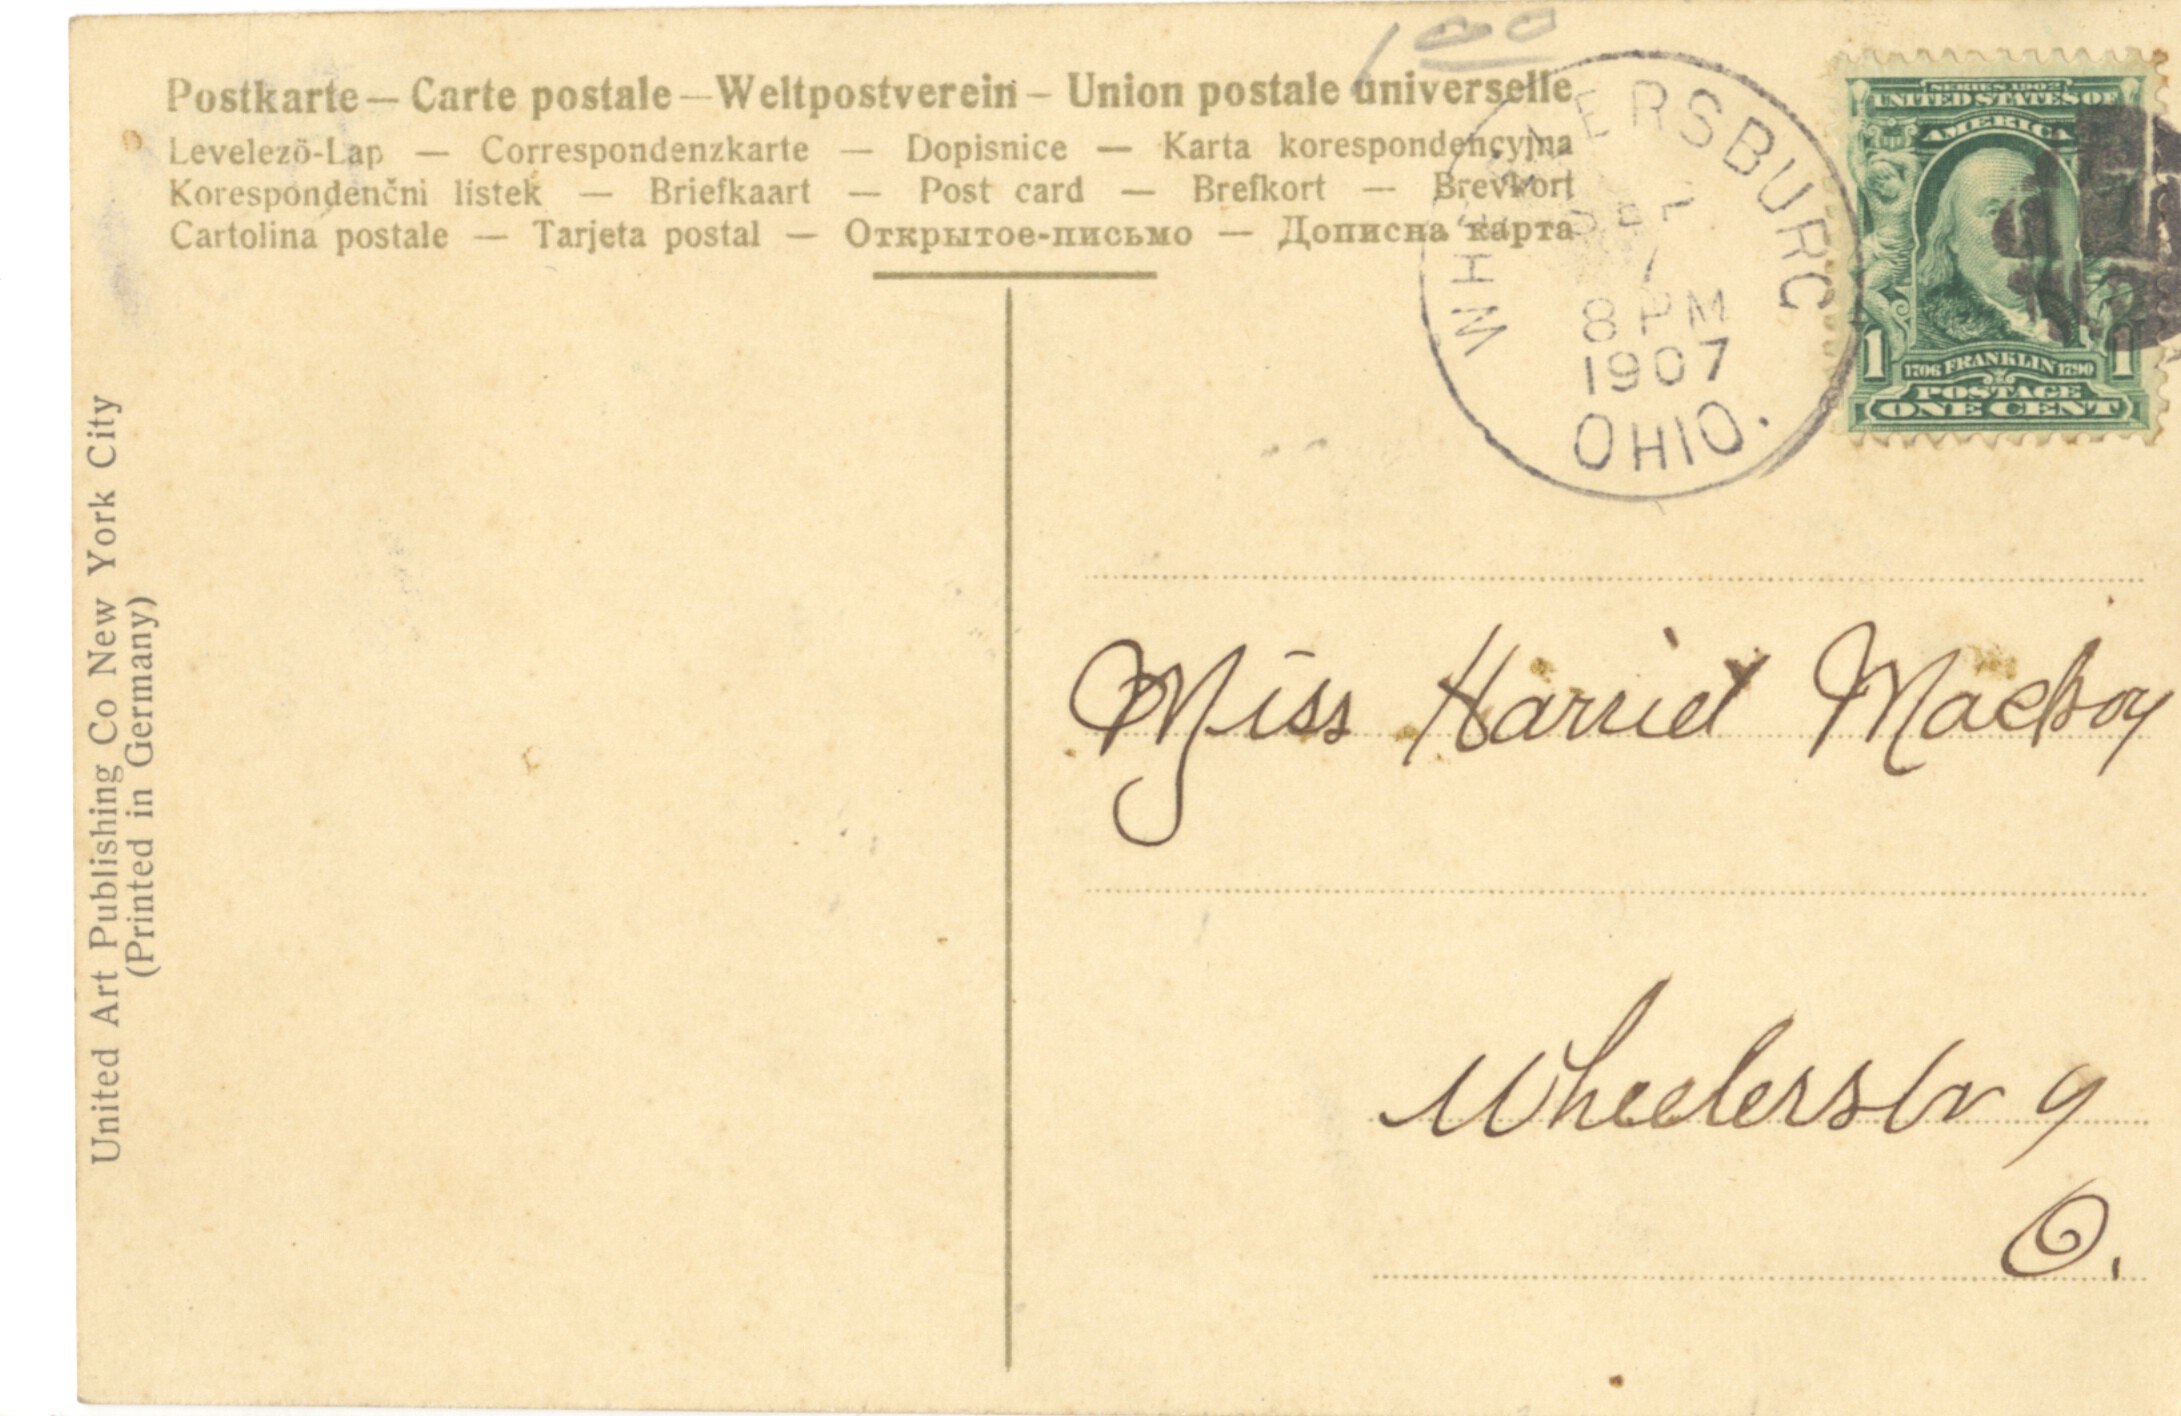 1 00
Postkarte — Carte postale — Weltpostverein — Union postale universelle
Levelezö-Lap — Correspondenzkarte — Dopisnice — Karta korespondencyjna
Korespondenční lístek — Briefkaart — Post card — Brefkort — Brevkort
Cartolina postale — Tarjeta postal — Открытое-письмо — Дописна карта
WHEELERSBURG
SEP
7
8 PM
1907
OHIO.
SERIES 1902
UNITED STATES OF
AMERICA
1 1706 FRANKLIN 1790 1
POSTAGE
ONE CENT
United Art Publishing Co New York City
(Printed in Germany)
Miss Harriet Mackoy
Wheelersbrg
O.